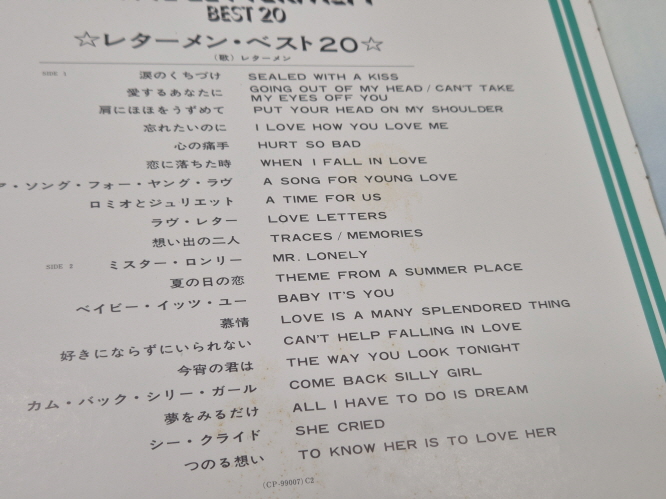 BEST 20
☆レターメン・ベスト20☆
(歌) レターメン
SIDE 1
涙のくちづけ SEALED WITH A KISS
愛するあなたに GOING OUT OF MY HEAD / CAN'T TAKE
MY EYES OFF YOU
肩にほほをうずめて PUT YOUR HEAD ON MY SHOULDER
忘れたいのに I LOVE HOW YOU LOVE ME
心の痛手 HURT SO BAD
恋に落ちた時 WHEN I FALL IN LOVE
ア・ソング・フォー・ヤング・ラヴ A SONG FOR YOUNG LOVE
ロミオとジュリエット A TIME FOR US
ラヴ・レター LOVE LETTERS
想い出の二人 TRACES / MEMORIES
SIDE 2
ミスター・ロンリー MR. LONELY
夏の日の恋 THEME FROM A SUMMER PLACE
ベイビー・イッツ・ユー BABY IT'S YOU
慕情 LOVE IS A MANY SPLENDORED THING
好きにならずにいられない CAN'T HELP FALLING IN LOVE
今宵の君は THE WAY YOU LOOK TONIGHT
カム・バック・シリー・ガール COME BACK SILLY GIRL
夢をみるだけ ALL I HAVE TO DO IS DREAM
シー・クライド SHE CRIED
つのる想い TO KNOW HER IS TO LOVE HER
(CP-99007) C2